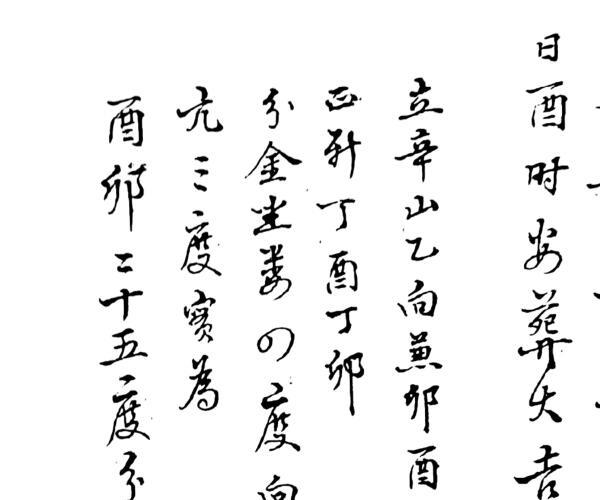 日酉时安葬大吉
立辛山乙向兼卯酉
正針丁酉丁卯
分金坐娄四度向
亢三度實為
酉卯二十五度分